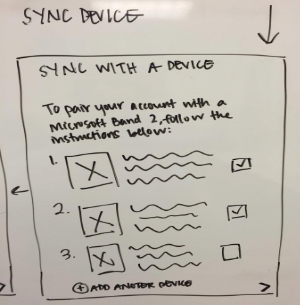 SYNC DEVICE
SYNC WITH A DEVICE
To pair your account with a
Microsoft Band 2, follow the
instructions below:
1.
2.
3.
+ ADD ANOTHER DEVICE >